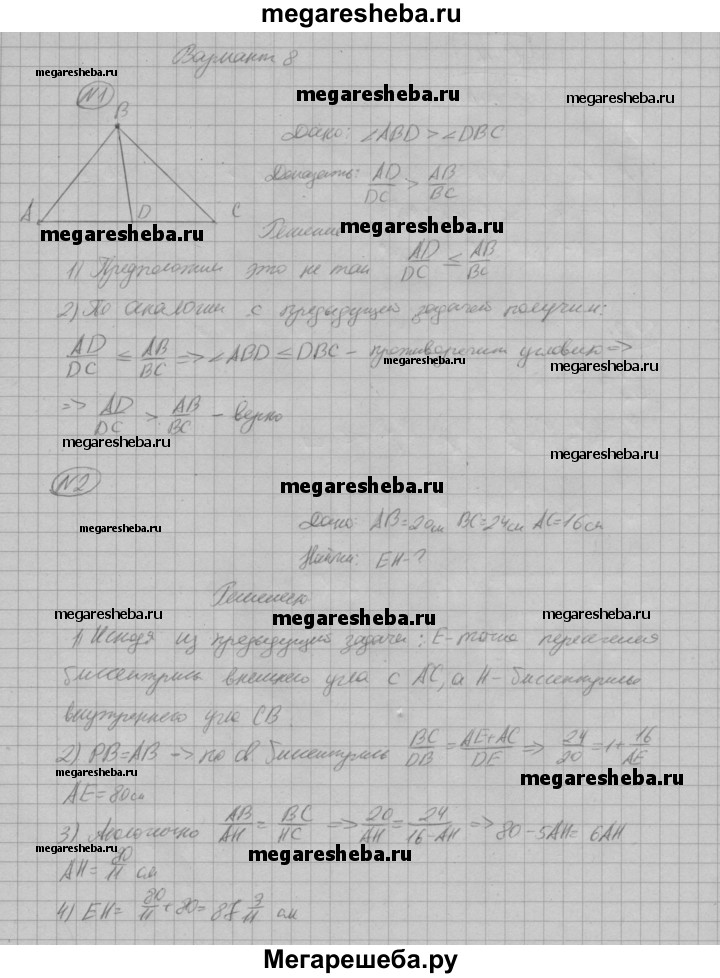 megaresheba.ru
Вариант 8
megaresheba.ru
megaresheba.ru
megaresheba.ru
N1
B
Дано: ∠ABD > ∠DBC
Доказать: AD/DC > AB/BC
A D C
megaresheba.ru
megaresheba.ru
Решение
1) Предположим это не так AD/DC ≤ AB/BC
2) По аналогии с предыдущей задачей получим:
AD/DC ≤ AB/BC => ∠ABD ≤ DBC – противоречит условию =>
megaresheba.ru
megaresheba.ru
=> AD/DC > AB/BC – верно
megaresheba.ru
megaresheba.ru
N2
megaresheba.ru
megaresheba.ru
Дано: AB=20см BC=24см AC=16см
Найти: EH-?
Решение
megaresheba.ru
megaresheba.ru
megaresheba.ru
1) Исходя из предыдущей задачи: E-точка пересечения
биссектрисы внешнего угла с AC, а H-биссектрисы
внутреннего угла CB
2) PB=AB -> по св. биссектрисы BC/DB = AE+AC/DE => 24/20 = 1+16/AE
megaresheba.ru
megaresheba.ru
AE=80см
3) Аналогично AB/AH = BC/HC => 20/AH = 24/16-AH => 80-5AH= 6AH
megaresheba.ru
megaresheba.ru
AH= 80/11 см
4) EH= 80/11 + 80= 87 3/11 см
Мегарешеба.ру